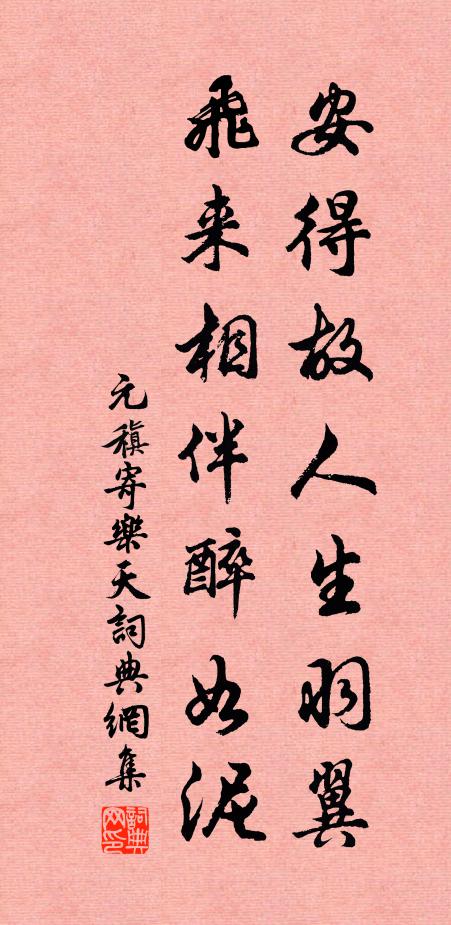 安得故人生羽翼
飛来相伴醉如泥
元稹寄樂天詞典網集
詞典网印